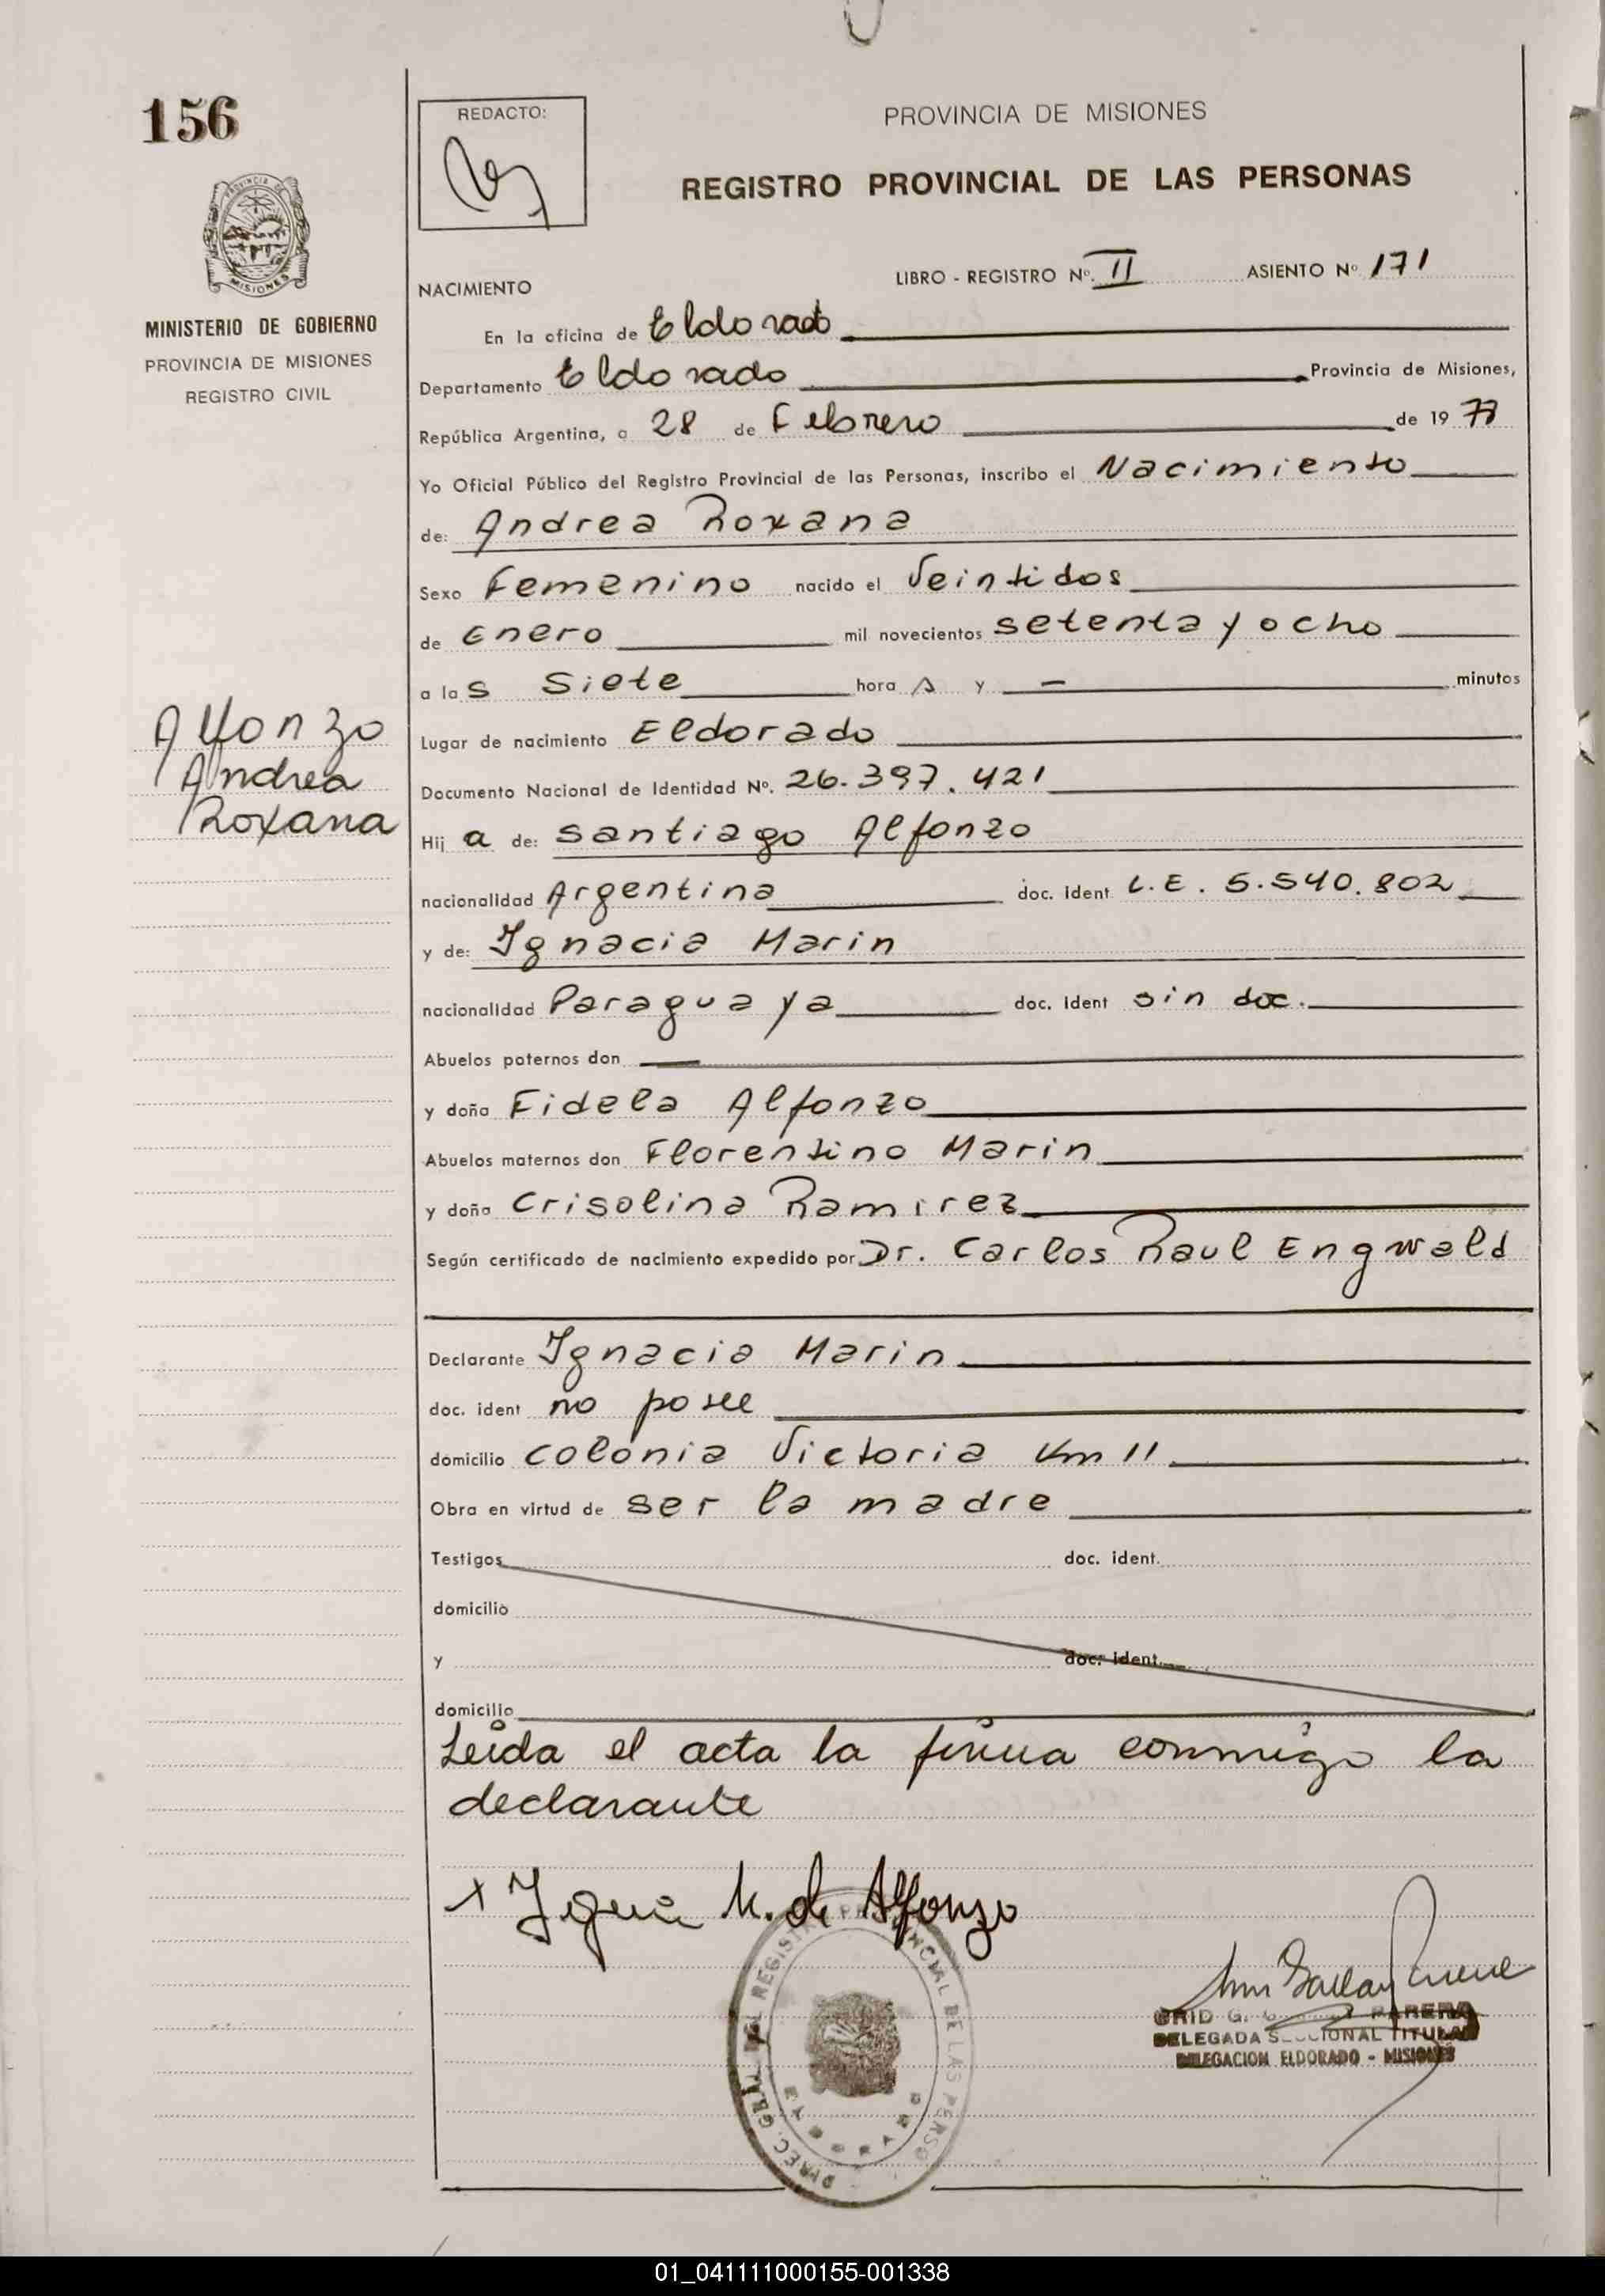 156
REDACTO:
PROVINCIA DE MISIONES
REGISTRO PROVINCIAL DE LAS PERSONAS
MISIONES
MINISTERIO DE GOBIERNO
PROVINCIA DE MISIONES
REGISTRO CIVIL
LIBRO - REGISTRO Nº. II ASIENTO Nº 171
NACIMIENTO
En la oficina de Eldorado
Departamento Eldorado Provincia de Misiones,
República Argentina, a 28 de Febrero de 19
Yo Oficial Público del Registro Provincial de las Personas, inscribo el Nacimiento
de: Andrea Roxana
Sexo Femenino nacido el Veintidos
de Enero mil novecientos setenta y ocho
a las Siete hora s y — minutos
Alfonzo
Andrea
Roxana
Lugar de nacimiento Eldorado
Documento Nacional de Identidad Nº. 26.397.421
Hij a de: Santiago Alfonzo
nacionalidad Argentina doc. ident L.E. 5.540.802
y de: Ignacia Marin
nacionalidad Paraguaya doc. ident sin doc.
Abuelos paternos don —
y doña Fidela Alfonzo
Abuelos maternos don Florentino Marin
y doña Crisolina Ramirez
Según certificado de nacimiento expedido por Dr. Carlos Raul Engwald
Declarante Ignacia Marin
doc. ident no posee
domicilio colonia Victoria Km 11
Obra en virtud de ser la madre
Testigos doc. ident.
domicilio
y doc. ident.
domicilio
Leida el acta la firma conmigo la
declarante
x M. de Alfonzo
G. PARERA
DELEGADA SECCIONAL TITULAR
DELEGACION ELDORADO - MISIONES
DIREC. GRAL. DEL REGISTRO PROVINCIAL DE LAS PERSO
ELDORADO
01_041111000155-001338